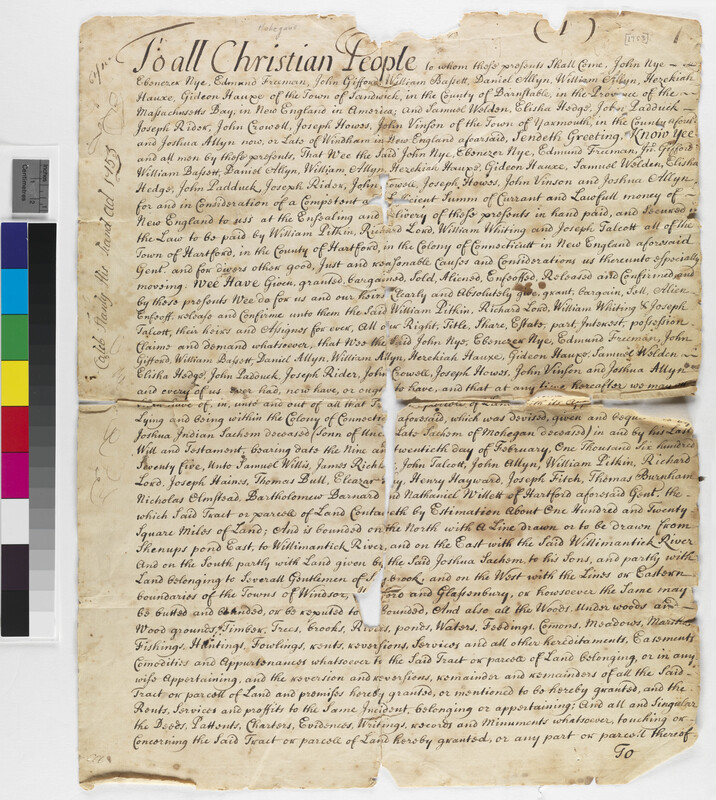 Mohegans
(1)
[1753]
To all Christian People to whom these presents Shall Come, John Nye
Ebenezer Nye, Edmund Freeman, John Gifford, William Bassett, Daniel Allyn, William Allyn, Hezekiah
Hauxe, Gideon Hauxe of the Town of Sandwich, in the County of Barnstable, in the Province of the
Massachusetts Bay, in New England in America; And Samuel Welden, Elisha Hedge, John Padduck
Joseph Rider, John Crowell, Joseph Howes, John Vinson of the Town of Yarmouth, in the County aforesd
and Joshua Allyn now, or Late of Windham in New England aforsaid, Sendeth Greeting, Know Yee
and all men by these presents, That Wee the Said John Nye, Ebenezer Nye, Edmund Freeman, Jno. Gifford
William Bassett, Daniel Allyn, William Allyn, Hezekiah Hauxe, Gideon Hauxe, Samuel Welden, Elisha
Hedge, John Padduck, Joseph Rider, John Crowell, Joseph Howes, John Vinson and Joshua Allyn
for and in Consideration of a Competent a Sufficient Summ of Currant and Lawfull money of
New England to us at the Ensealing and delivery of these presents in hand paid, and Secured in
the Law to be paid by William Pitkin, Richard Lord, William Whiting and Joseph Talcott all of the
Town of Hartford, in the County of Hartford, in the Colony of Connecticutt in New England aforesaid
Gent. and for divers other good, Just and reasonable Causes and Considerations us thereunto especially
moving. Wee Have Given, granted, bargained, Sold, Aliened, Enfeoffed, Released and Confirmed and
by these presents Wee do for us and our heirs Clearly and Absolutely give, grant, bargain, Sell, Alien
Enfeoff, release and Confirme unto them the Said William Pitkin, Richard Lord, William Whiting & Joseph
Talcott, their heirs and Assignes for ever, All our Right, Title, Share, Estate, part, Interest, possession
Claims and demand whatsoever, that Wee the Said John Nye, Ebenezer Nye, Edmund Freeman, John
Gifford, William Bassett, Daniel Allyn, William Allyn, Hezekiah Hauxe, Gideon Hauxe, Samuel Welden
Elisha Hedge, John Padduck, Joseph Rider, John Crowell, Joseph Howes, John Vinson and Joshua Allyn
and every of us Ever had, now have, or ought to have, and that at any time hereafter we may
have of, in, and out of all that
Lying and being within the Colony of Connecti aforesaid, which was devised, given and beque
Joshua Indian Sachem deceased (Sonn of Unc Late Sachem of Mohegan deceased) in and by his Last
Will and Testament, bearing date the Nine an twentieth day of February, One Thousand Six hundred
Seventy five, Unto Samuel Willis, James Rich John Talcott, John Allyn, William Pitkin, Richard
Lord, Joseph Haines, Thomas Bull, Eleazar y, Henry Hayward, Joseph Fitch, Thomas Burnham
Nicholas Olmstead, Bartholomew Barnard and Nathaniel Willett of Hartford aforesaid Gent. the
which Said Tract or parcell of Land Containeth by Estimation About One Hundred and Twenty
Square Miles of Land; And is bounded on the North with A Line drawn or to be drawn from
Shenups pond East, to Willimantick River, and on the East with the Said Willimantick River
And on the South partly with Land given by the Said Joshua Sachem to his Sons, and partly with
Land belonging to Severall Gentlemen of Saybrook, and on the West with the Lines or Eastern
boundaries of the Towns of Windsor, ford and Glasenbury, or howsoever the Same may
be butted and bounded, or be reputed to bounded, And also all the Woods Under woods and
Wood grounds, Timber, Trees, brooks, Rivers, ponds, Waters, Feedings, Comons, Meadows, Marishes
Fishings, Huntings, Fowlings, rents, reversions, Services and all other hereditaments, Easments
Comodities and Appurtenances whatsoever to the Said Tract or parcell of Land belonging, or in any
wise Appertaining, and the reversion and reversions, remainder and remainders of all the Said
Tract or parcell of Land and premises hereby granted, or mentioned to be hereby granted, and the
Rents, Services and proffits to the Same Incident, belonging or appertaining; And all and Singular
the Deeds, Pattents, Charters, Evidences, Writings, records and Minuments whatsoever, touching or
Concerning the Said Tract or parcell of Land hereby granted, or any part or parcell thereof
To
Centimetres